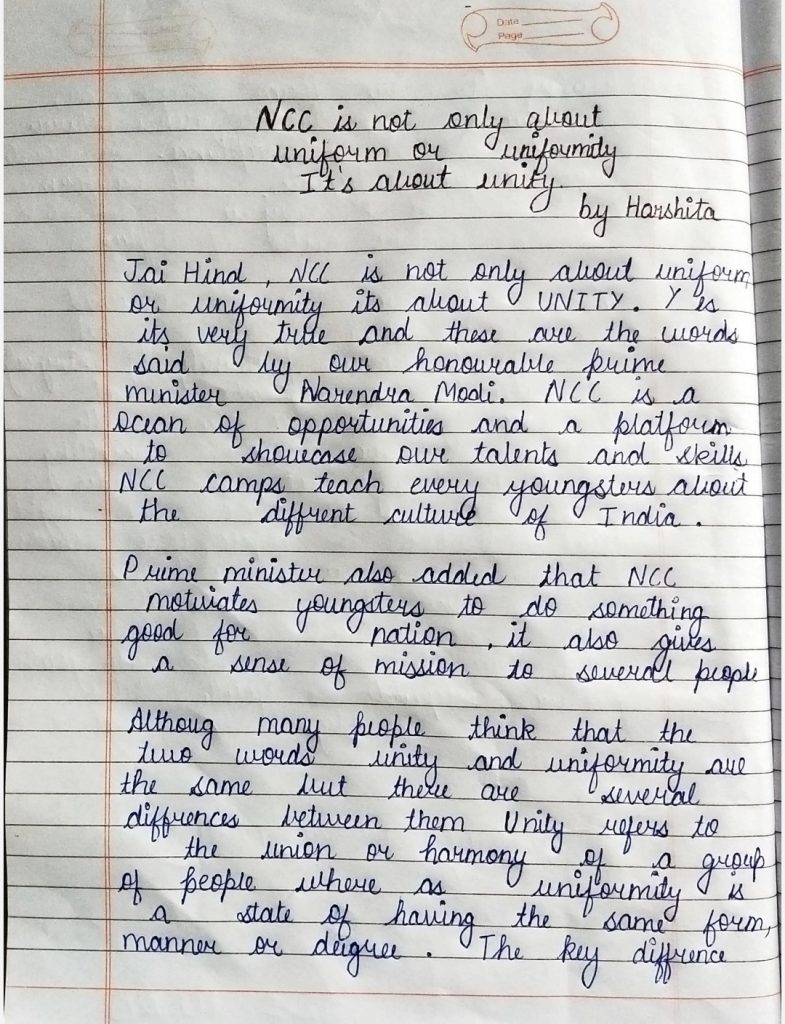 Date
Page
NCC is not only about
uniform or uniformity
It's about unity.
by Harshita
Jai Hind , NCC is not only about uniform
or uniformity its about UNITY. Y es
its very true and these are the words
said by our honourable prime
minister Narendra Modi. NCC is a
Ocean of opportunities and a platform
to showcase our talents and skills
NCC camps teach every youngsters about
the diffrent culture of India .
Prime minister also added that NCC
motviates youngsters to do something
good for nation , it also gives
a sense of mission to several people
Althoug many people think that the
two words unity and uniformity are
the same but there are several
diffrences between them Unity refers to
the union or harmony of a group
of people where as uniformity is
a state of having the same form,
manner or deigree . The key diffrence